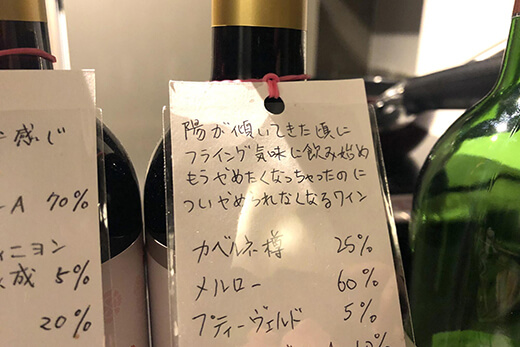 感じ
A 70%
ニヨン
成 5%
20%
陽が傾いてきた頃に
フライング気味に飲み始め
もうやめたくなっちゃったのに
ついやめられなくなるワイン
カベルネ樽 25%
メルロー 60%
プティーヴェルド 5%